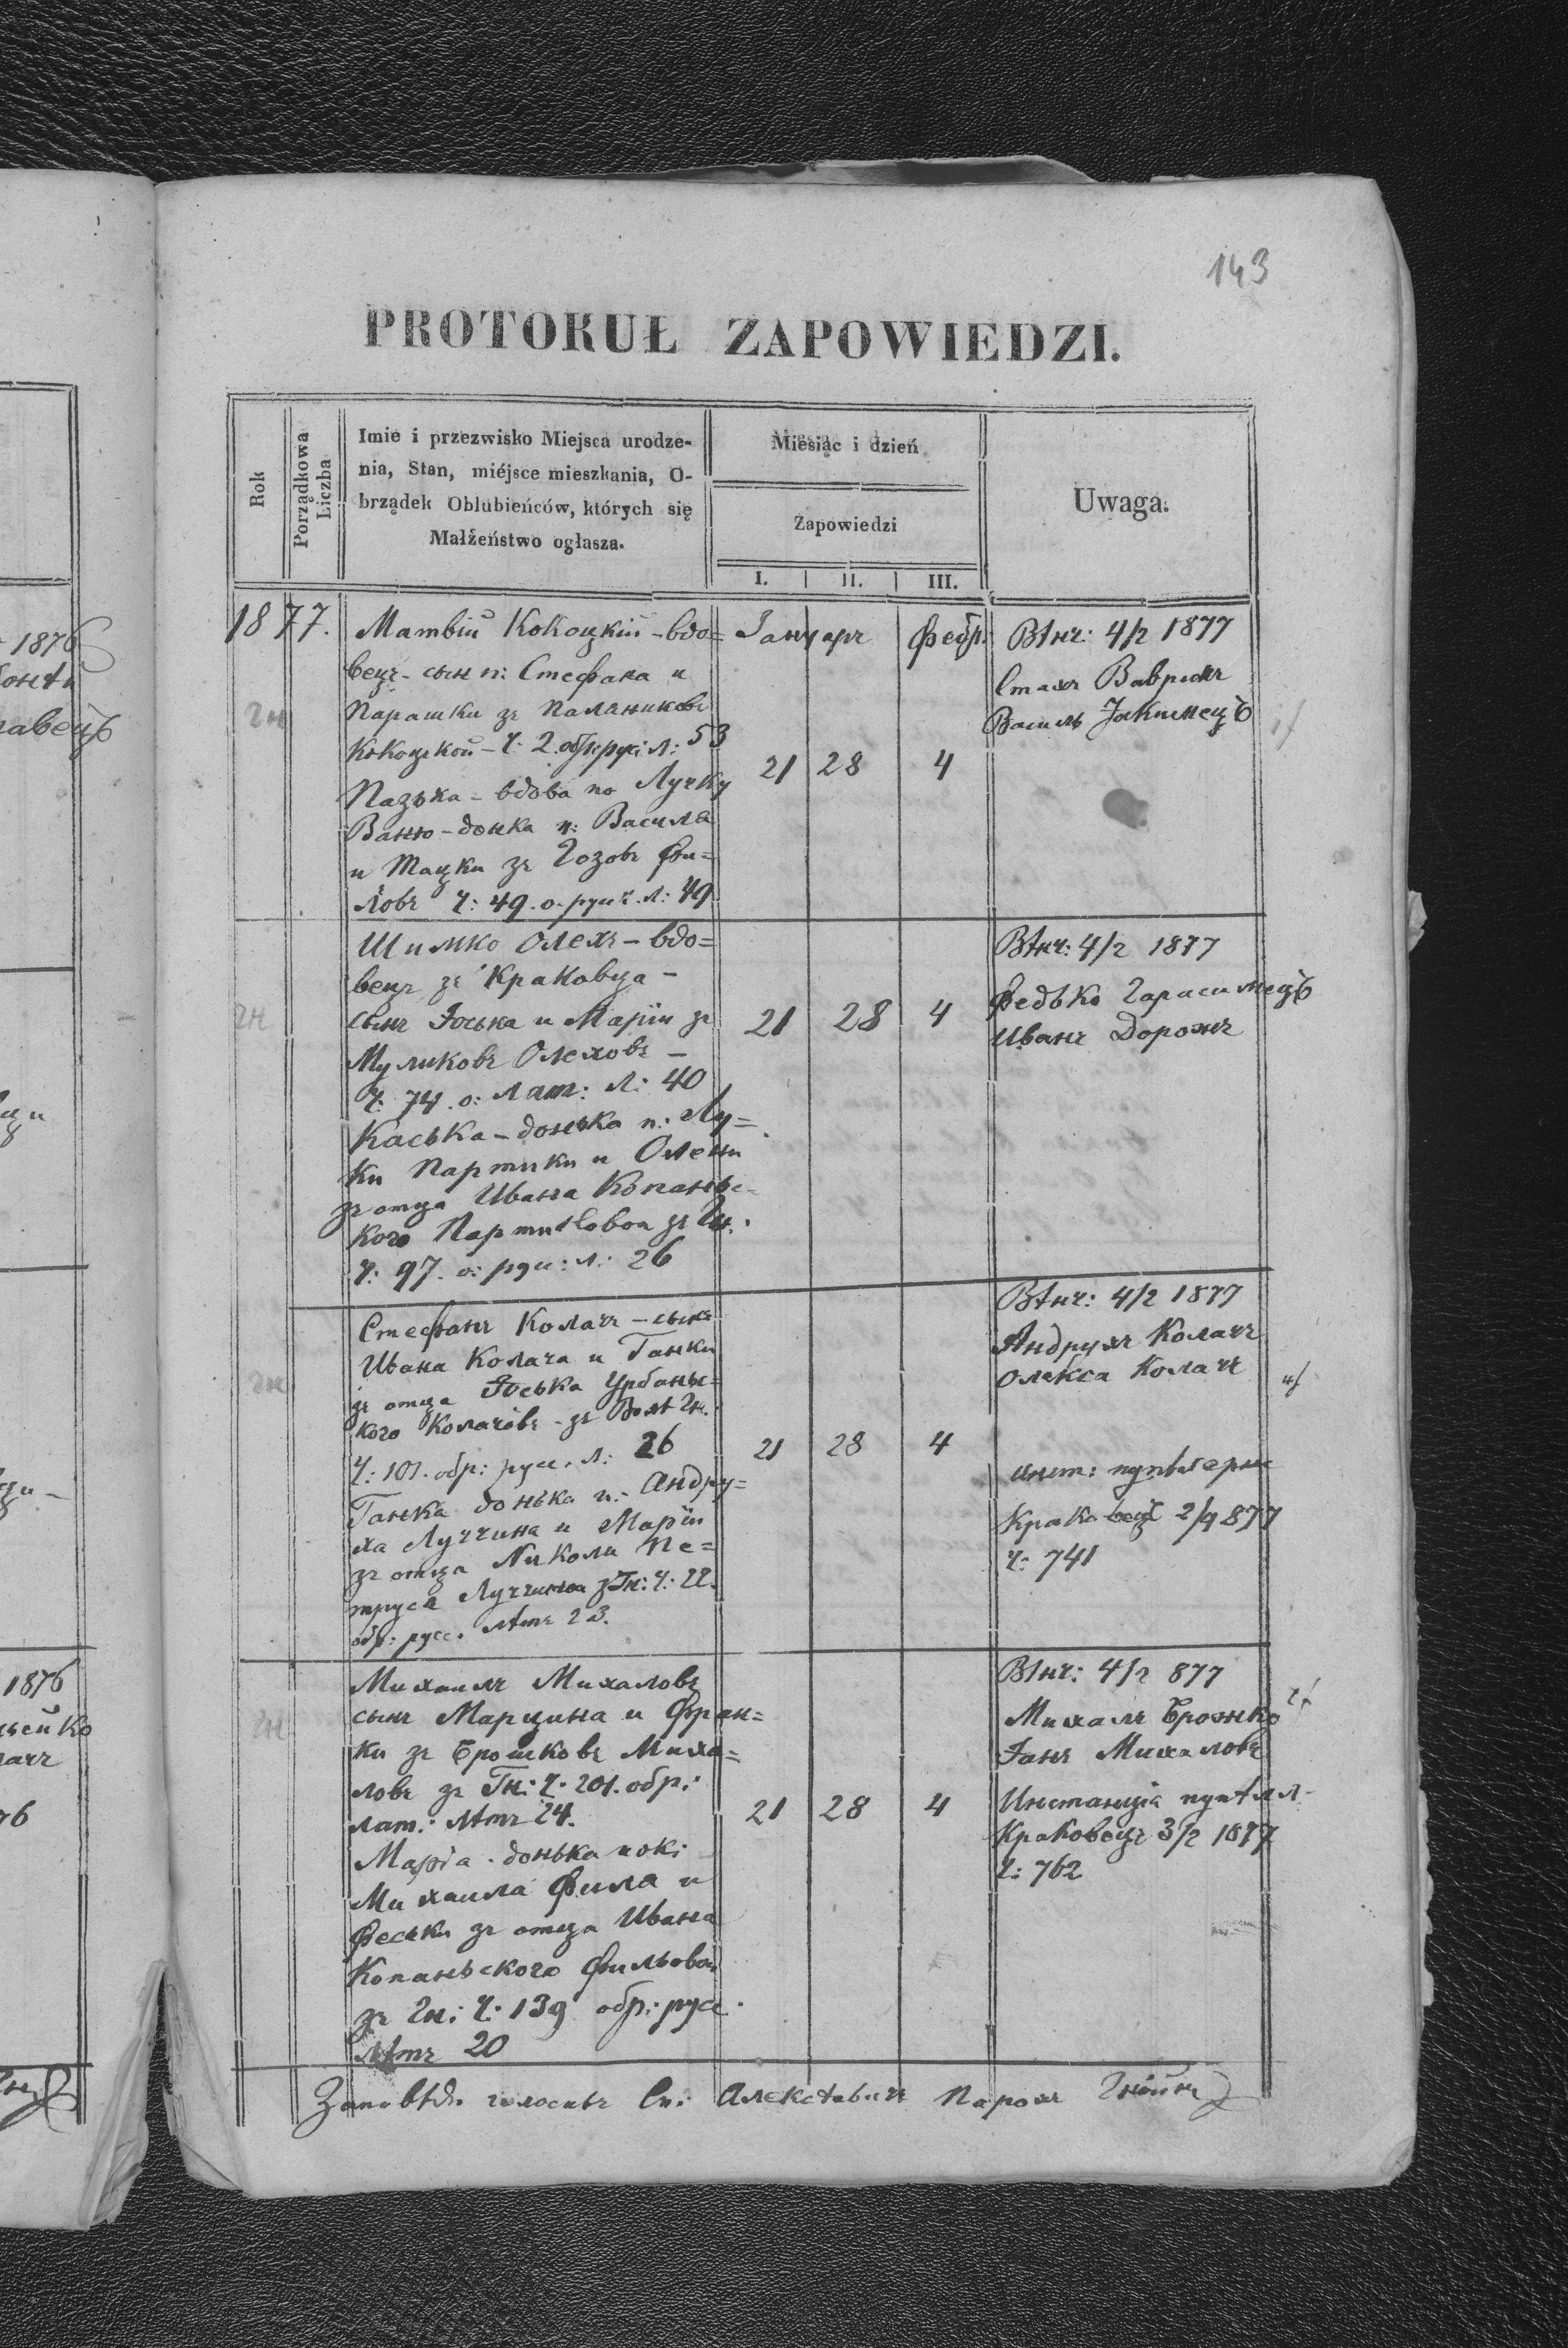 143
PROTOKUŁ ZAPOWIEDZI.
Rok
Porządkowa Liczba
Imie i przezwisko Miejsca urodze-
nia, Stan, miéjsce mieszkania, O-
brządek Oblubieńców, których się
Małżeństwo ogłasza.
Miesiąc i dzień
Zapowiedzi
I. II. III.
Uwaga.
1877.
Матвій Кокоцкій - вдо=
вецъ - сын п: Стефана и
Парашки зъ Паляниковъ
Кокоцкой - Ч: 2. обр: рус: л: 53
Пазька - вдова по Лучку
Ваню - донька п: Василя
и Мацки зъ Гозовъ Фи=
ловъ Ч: 49. о. руш. л: 49
Януаръ Фебр:
21 28 4
Вѣнч: 4/2 1877
Стахъ Вавринъ
Василь Якимецъ
Гн
Шимко Олехъ - вдо=
вецъ зъ Краковца -
сынъ Йоська и Маріи зъ
Муликовъ Олеховъ -
Ч: 74. о: лат: л: 40
Каська - донька п: Лу=
ки Партики и Олены
зъ отца Ивана Копаньс=
кого Партиковои зъ Гн.
Ч: 97. о: рус: л: 26
21 28 4
Вѣнч: 4/2 1877
Федько Гарасимецъ
Иванъ Дорожъ
Гн
Стефанъ Колачъ - сынъ
Ивана Колача и Ганки
зъ отца Йоська Урбаньс=
кого Колачовъ - зъ Волѣ Гн.
Ч: 101. обр: русс. л: 26
Ганка донька п: Андру=
ха Луччина и Маріи
зъ отца Николи Пе=
труса Луччинои з Гн: Ч: 22.
обр: русс. лѣтъ 23.
21 28 4
Вѣнч: 4/2 1877
Андрухъ Колачъ
Олекса Колачъ
Краковецъ 2/9 877
Ч: 741
Гн
Михаилъ Михаловъ
сынъ Марцина и Фран=
ки зъ Брошковъ Миха=
ловъ зъ Гн: Ч: 201. обр:
лат: лѣтъ 24.
Марія донька пок:
Михаила Филя и
Феськи зъ отца Ивана
Копаньского Фильовои
зъ Гн: Ч: 139 обр: русс.
лѣтъ 20
21 28 4
Вѣнч: 4/2 877
Михалъ Брошко
Янъ Михаловъ
Инстанція
Краковецъ 3/2 1877
Ч: 762
Гн
Заповѣди голосивъ Алексѣевичъ Парохъ